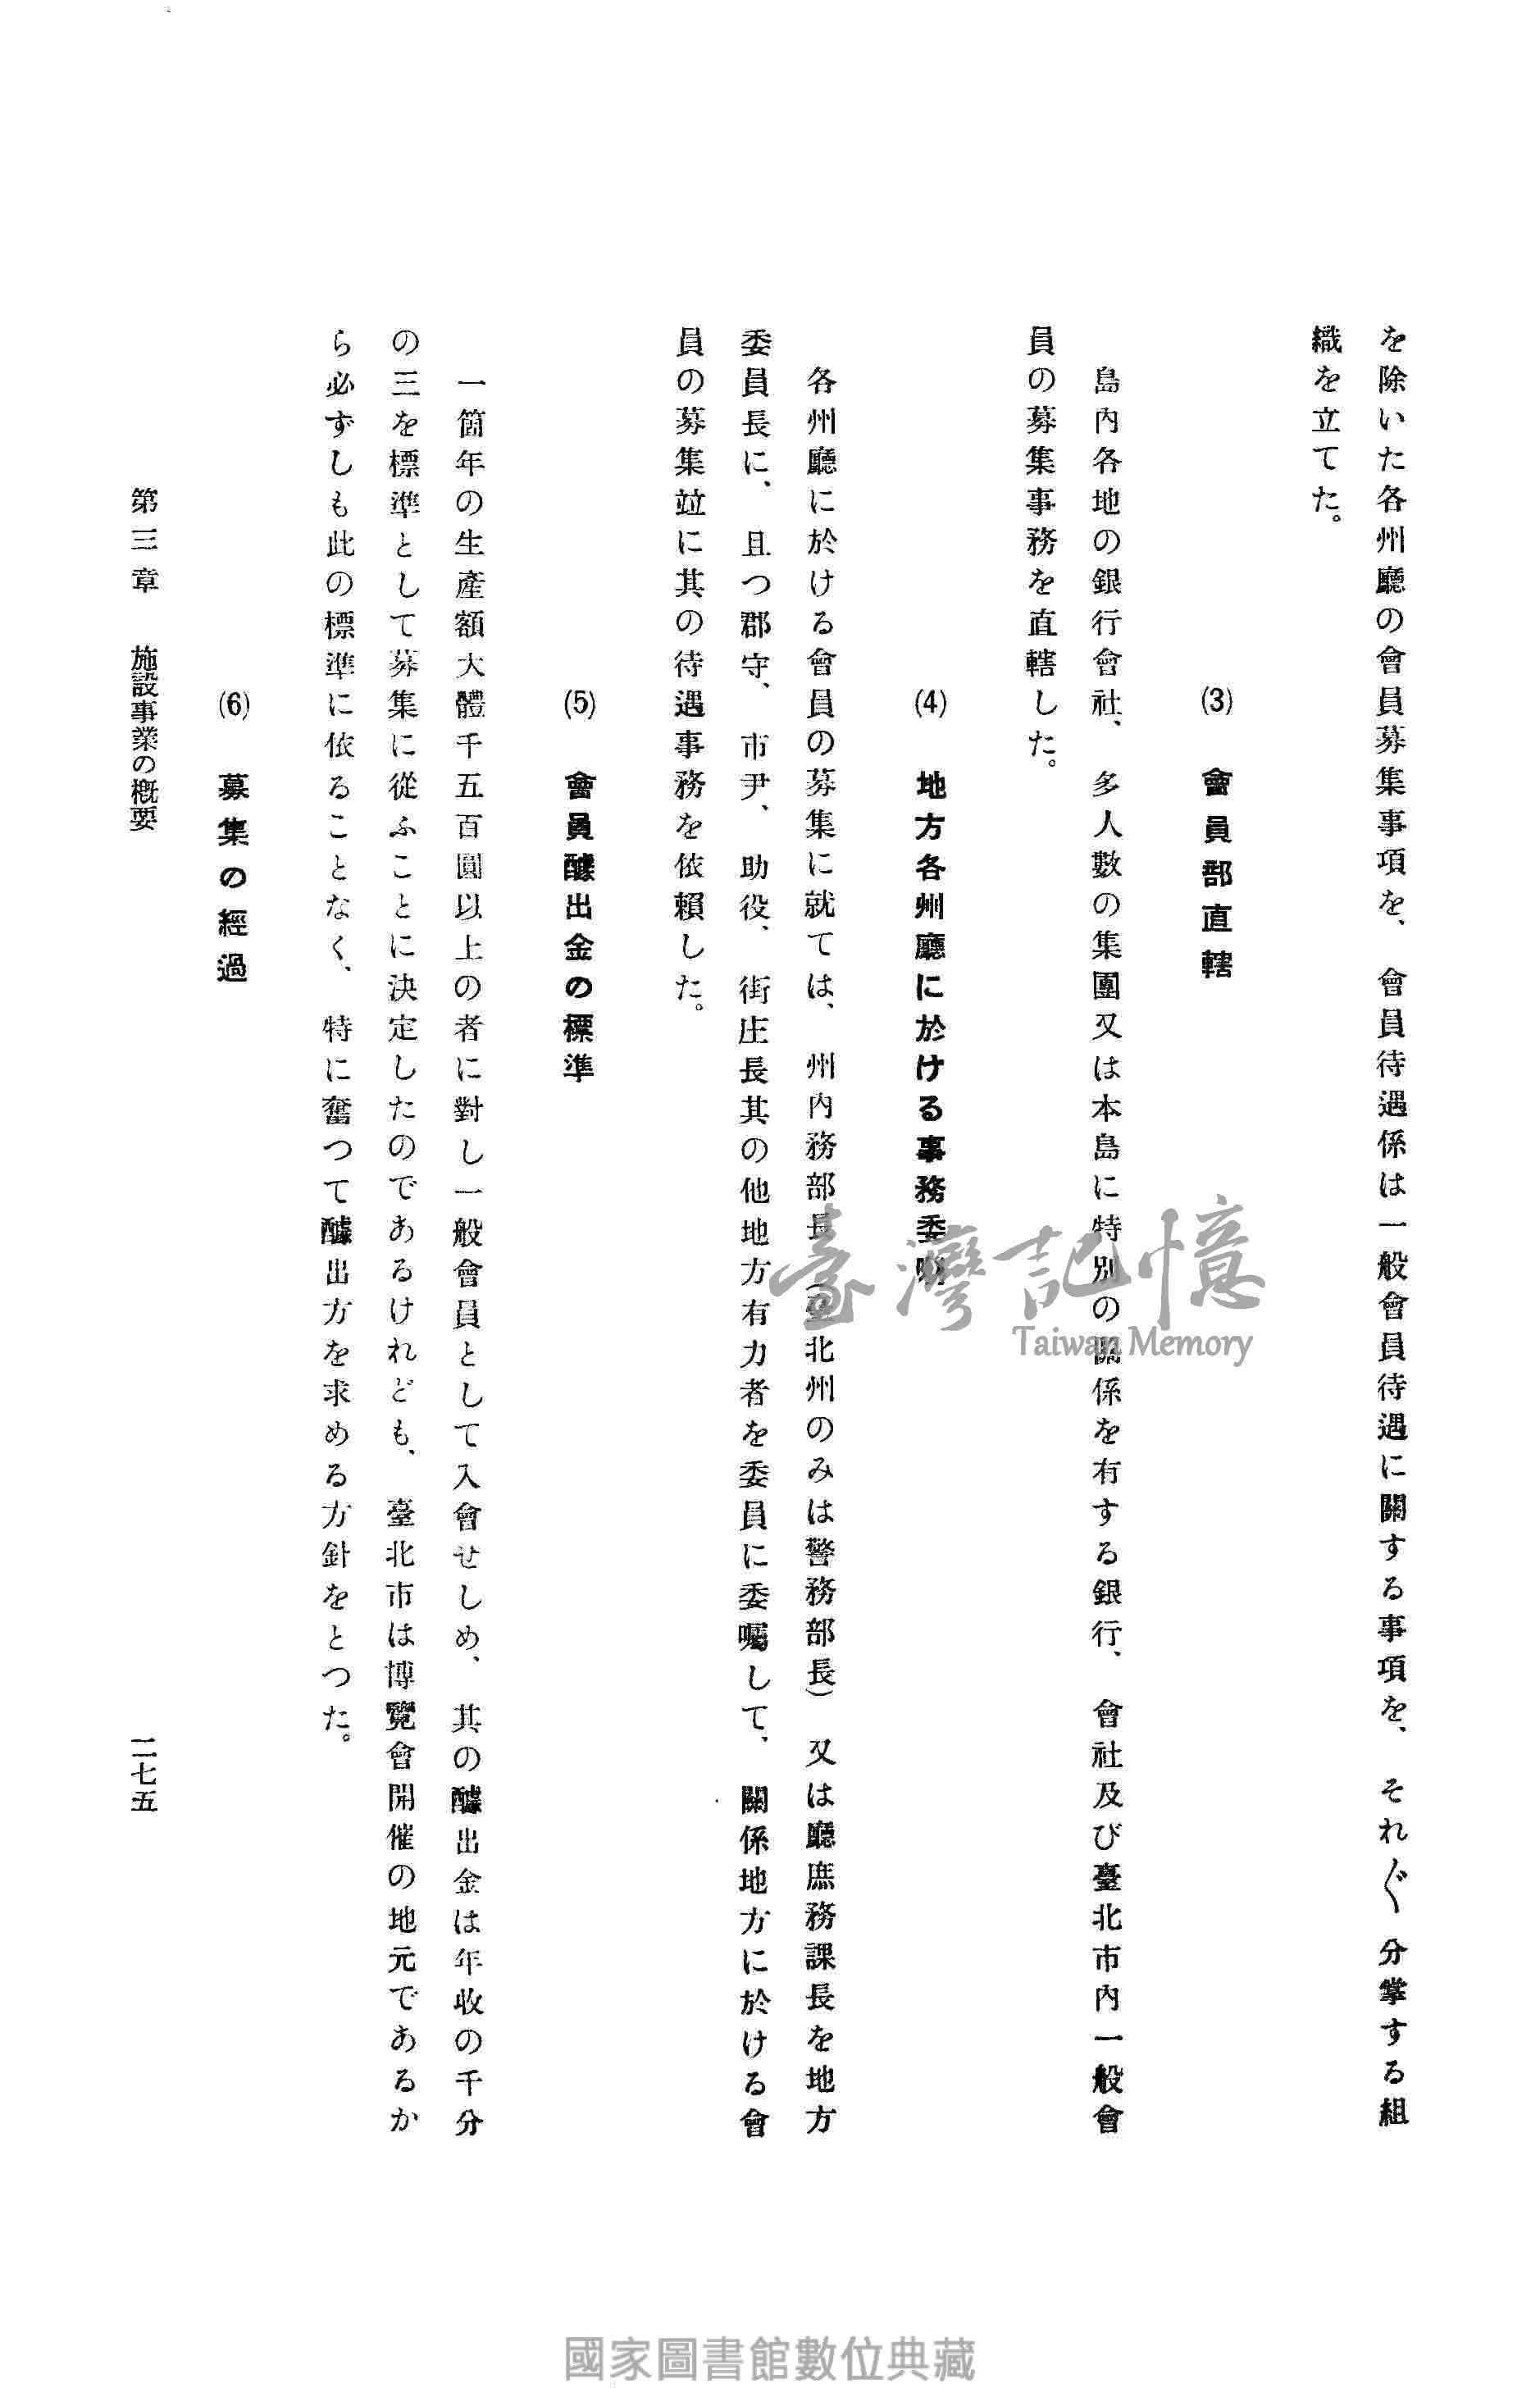 を除いた各州廳の會員募集事項を、會員待遇係は一般會員待遇に關する事項を、それ〴〵分掌する組
織を立てた。
(3) 會員部直轄
島內各地の銀行會社、多人數の集團又は本島に特別の關係を有する銀行、會社及び臺北市內一般會
員の募集事務を直轄した。
(4) 地方各州廳に於ける事務委囑
各州廳に於ける會員の募集に就ては、州內務部長(臺北州のみは警務部長)又は廳庶務課長を地方
委員長に、且つ郡守、市尹、助役、街庄長其の他地方有力者を委員に委囑して、關係地方に於ける會
員の募集竝に其の待遇事務を依賴した。
(5) 會員醵出金の標準
一箇年の生產額大體千五百圓以上の者に對し一般會員として入會せしめ、其の醵出金は年收の千分
の三を標準として募集に從ふことに決定したのであるけれども、臺北市は博覽會開催の地元であるか
ら必ずしも此の標準に依ることなく、特に奮つて醵出方を求める方針をとつた。
(6) 募集の經過
第三章 施設事業の槪要
二七五
臺灣記憶
Taiwan Memory
國家圖書館數位典藏